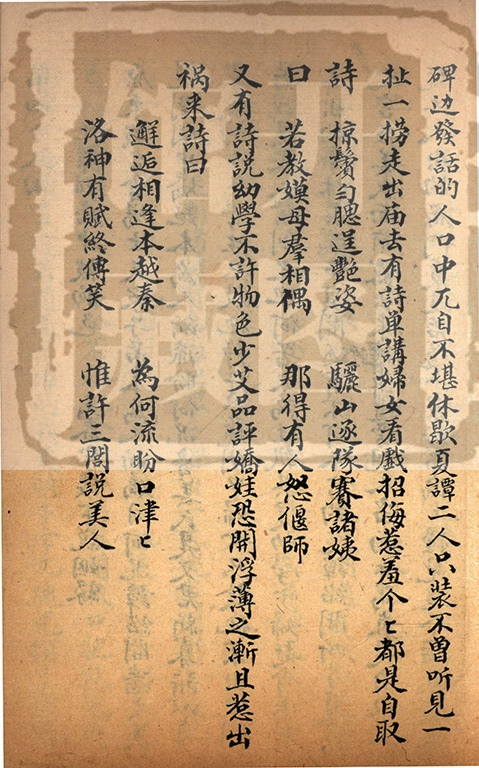 碑边發話的人口中兀自不堪休歇夏譚二人只装不曾听見一
扯一捞走出庙去有詩单講婦女看戲招侮惹羞个〻都是自取
詩　掠鬢匀腮逞艷姿　驪山逐隊賽諸姨
曰　若教嫫母羣相偶　那得有人怒偃師
又有詩説幼學不許物色少艾品評嬌娃恐開浮薄之漸且惹出
祸来詩曰
邂逅相逢本越秦　為何流盼口津〻
洛神有賦終傅笑　惟許三閭説美人